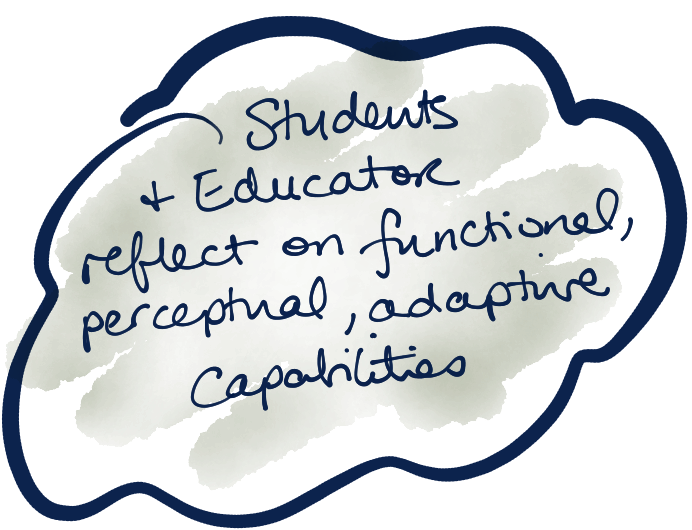 Students
+ Educator
reflect on functional,
perceptual, adaptive
Capabilities